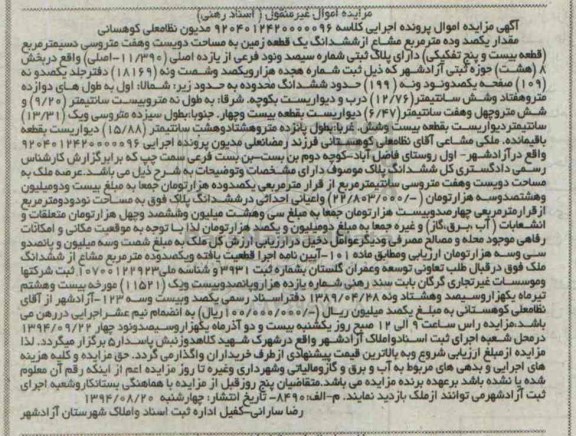 مزایده اموال غیرمنقول ( اسناد رهنی)
آگهی مزایده اموال پرونده اجرایی کلاسه ۹۲۰۴۰۱۲۴۲۰۰۰۰۰۹۶ مدیون نظامعلی کوهسانی
مقدار یکصد وده مترمربع مشاع ازششدانگ یک قطعه زمین به مساحت دویست وهفت متروسی دسیمترمربع
(قطعه بیست و پنج تفکیکی) دارای پلاک ثبتی شماره سیصد ونود فرعی از یازده اصلی (۱۱/۳۹۰-اصلی) واقع دربخش
۸ (هشت) حوزه ثبتی آزادشهر که ذیل ثبت شماره هجده هزارویکصد وشصت ونه (۱۸۱۶۹) دفترجلد یکصدو نه
(۱۰۹) صفحه یکصدونود ونه (۱۹۹) حدود ششدانگ محدوده به حدود زیر: شمالا: اول به طول های دوازده
متروهفتاد وشش سانتیمتر(۱۲/۷۶) درب و دیواریست بکوچه. شرقا: به طول نه متروبیست سانتیمتر (۹/۲۰) و
شش متروچهل وهفت سانتیمتر(۶/۴۷) دیواریست بقطعه بیست وچهار. جنوبا:بطول سیزده متروسی ویک (۱۳/۳۱)
سانتیمتردیواریست بقطعه بیست وشش. غربا:بطول پانزده متروهشتادوهشت سانتیمتر (۱۵/۸۸) دیواریست بقطعه
باقیمانده. ملکی مشاعی آقای نظامعلی کوهستانی فرزند رمضانعلی مدیون پرونده اجرایی ۹۲۰۴۰۱۲۴۲۰۰۰۰۰۹۶
واقع درآزادشهر- اول روستای فاضل آباد-کوچه دوم بن بست-بن بست فرعی سمت چپ که برابرگزارش کارشناس
رسمی دادگستری کل ششدانگ پلاک موصوف دارای مشخصات وتوضیحات به شرح ذیل می باشد.عرصه ملک به
مساحت دویست وهفت متروسی سانتیمترمربع از قرار مترمربعی یکصدوده هزارتومان جمعا به مبلغ بیست ودومیلیون
وهشتصدوسه هزارتومان (۲۲/۸۰۳/۰۰۰/-) واعیانی احداثی درششدانگ پلاک فوق به مساحت نودودومترمربع
ازقرارمترمربعی چهارصدوبیست هزارتومان جمعا به مبلغ سی وهشت میلیون وششصد وچهل هزارتومان متعلقات و
انشعابات ( آب ،برق،گاز) و غیره جمعا به مبلغ دومیلیون و یکصد هزارتومان لذا با توجه به موقعیت مکانی و امکانات
رفاهی موجود محله و مصالح مصرفی ودیگرعوامل دخیل درارزیابی ارزش کل ملک به مبلغ شصت وسه میلیون و پانصدو
سی وسه هزارتومان ارزیابی ومطابق ماده ۱۰۱-آیین نامه اجرا قطعیت یافته ویکصدوده مترمربع مشاع از ششدانگ
ملک فوق درقبال طلب تعاونی توسعه وعمران گلستان بشماره ثبت ۳۹۳۱ و شناسه ملی ۱۰۷۰۰۱۲۲۹۲۳ ثبت شرکتها
وموسسات غیرتجاری گرگان بابت سند رهنی شماره یازده هزاروپانصدوبیست ویک (۱۱۵۲۱) مورخه بیست وهشتم
تیرماه یکهزاروسیصد وهشتاد ونه ۱۳۸۹/۰۴/۲۸ دفتراسناد رسمی یکصد وبیست وسه ۱۲۳-آزادشهر از آقای
نظامعلی کوهستانی به مبلغ یکصد میلیون ریال (۱۰۰/۰۰۰/۰۰۰/-ریال) به انضمام نیم عشراجرایی دررهن می
باشد،مزایده راس ساعت ۹ الی ۱۲ صبح روز یکشنبه بیست و دو آذرماه یکهزاروسیصدونود چهار ۱۳۹۴/۰۹/۲۲
درمحل شعبه اجرای ثبت اسنادواملاک آزادشهر واقع درشهرک شهید کلاهدوزنبش پاسدار۵ برگزار میگردد. لذا
مزایده ازمبلغ ارزیابی شروع وبه بالاترین قیمت پیشنهادی ازطرف خریداران واگذارمی گردد. حق مزایده و کلیه هزینه
های اجرایی و بدهی های مربوط به آب و برق و گازومالیاتی وشهرداری وغیره تا روز مزایده اعم از اینکه رقم آن معلوم
شده یا نشده باشد برعهده برنده مزایده می باشد.متقاضیان پنج روزقبل از مزایده با هماهنگی بستانکاروشعبه اجرای
ثبت آزادشهرمی توانند ازملک بازدید نمایند. م-الف:۸۴۹۰- تاریخ انتشار: چهارشنبه ۱۳۹۴/۰۸/۲۰
رضا سارانی-کفیل اداره ثبت اسناد واملاک شهرستان آزادشهر